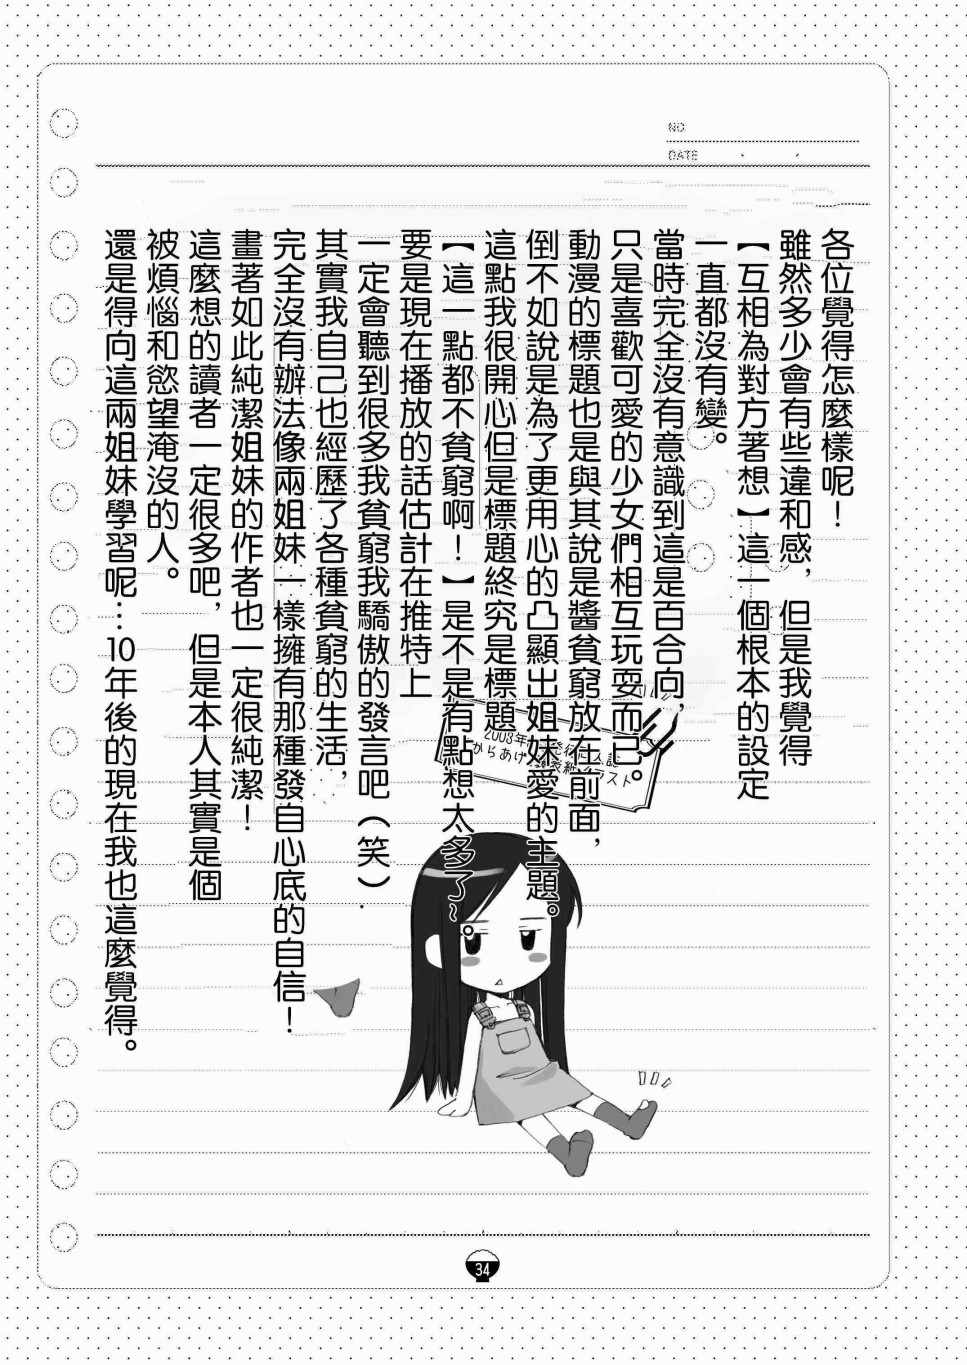 NO
DATE
各位覺得怎麼樣呢！
雖然多少會有些違和感，但是我覺得
【互相為對方著想】這一個根本的設定
一直都沒有變。
當時完全沒有意識到這是百合向，
只是喜歡可愛的少女們相互玩耍而已。
動漫的標題也是與其說是醬貧窮放在前面，
倒不如說是為了更用心的凸顯出姐妹愛的主題。
這點我很開心但是標題終究是標題
【這一點都不貧窮啊！】是不是有點想太多了~。
要是現在播放的話估計在推特上
一定會聽到很多我貧窮我驕傲的發言吧（笑）.
其實我自己也經歷了各種貧窮的生活，
完全沒有辦法像兩姐妹一樣擁有那種發自心底的自信！
畫著如此純潔姐妹的作者也一定很純潔！
這麼想的讀者一定很多吧，但是本人其實是個
被煩惱和慾望淹沒的人。
還是得向這兩姐妹學習呢…10年後的現在我也這麼覺得。
2003年
からあげ
34